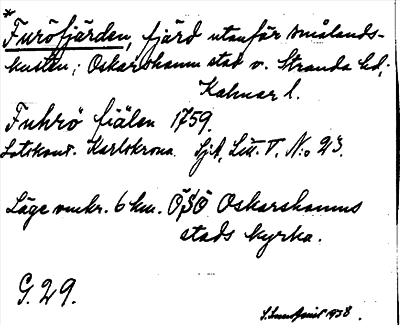 *
Furöfjärden, fjärd utanför Smålands-
kusten; Oskarshamn stad o. Stranda hd;
Kalmar l.
Fuhrö fiälen 1759.
Lotskont. Karlskrona. Sjk, Litt. V, No 23.
Läge omkr. 6 km. ÖSÖ Oskarshamns
stads kyrka.
G. 29.
1938.